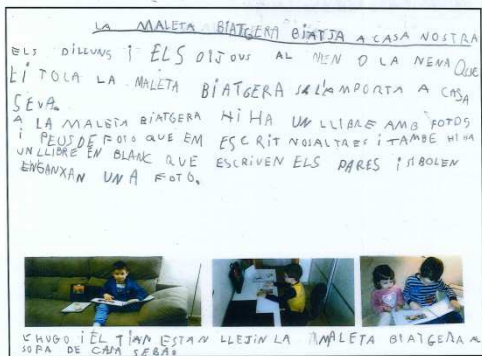 LA MALETA BIATGERA BIATJA A CASA NOSTRA
ELS DILLUNS I ELS DIJOUS AL NEN O LA NENA QUE
LI TOLA LA MALETA BIATGERA SA LAMPORTA A CASA
SEVA.
A LA MALETA BIATGERA HI HA UN LLIBRE AMB FOTOS
I PEUS DE FOTO QUE EM ESCRIT NOSALTRES I TAMBE HI HA
UN LLIBRE EN BLANC QUE ESCRIVEN ELS PARES I SIBOLEN
ENGANXAN UNA FOTO.
HUGO I EL TIAN ESTAN LLEJIN LA MALETA BIATGERA AL
SOFA DE CASA SEBA.